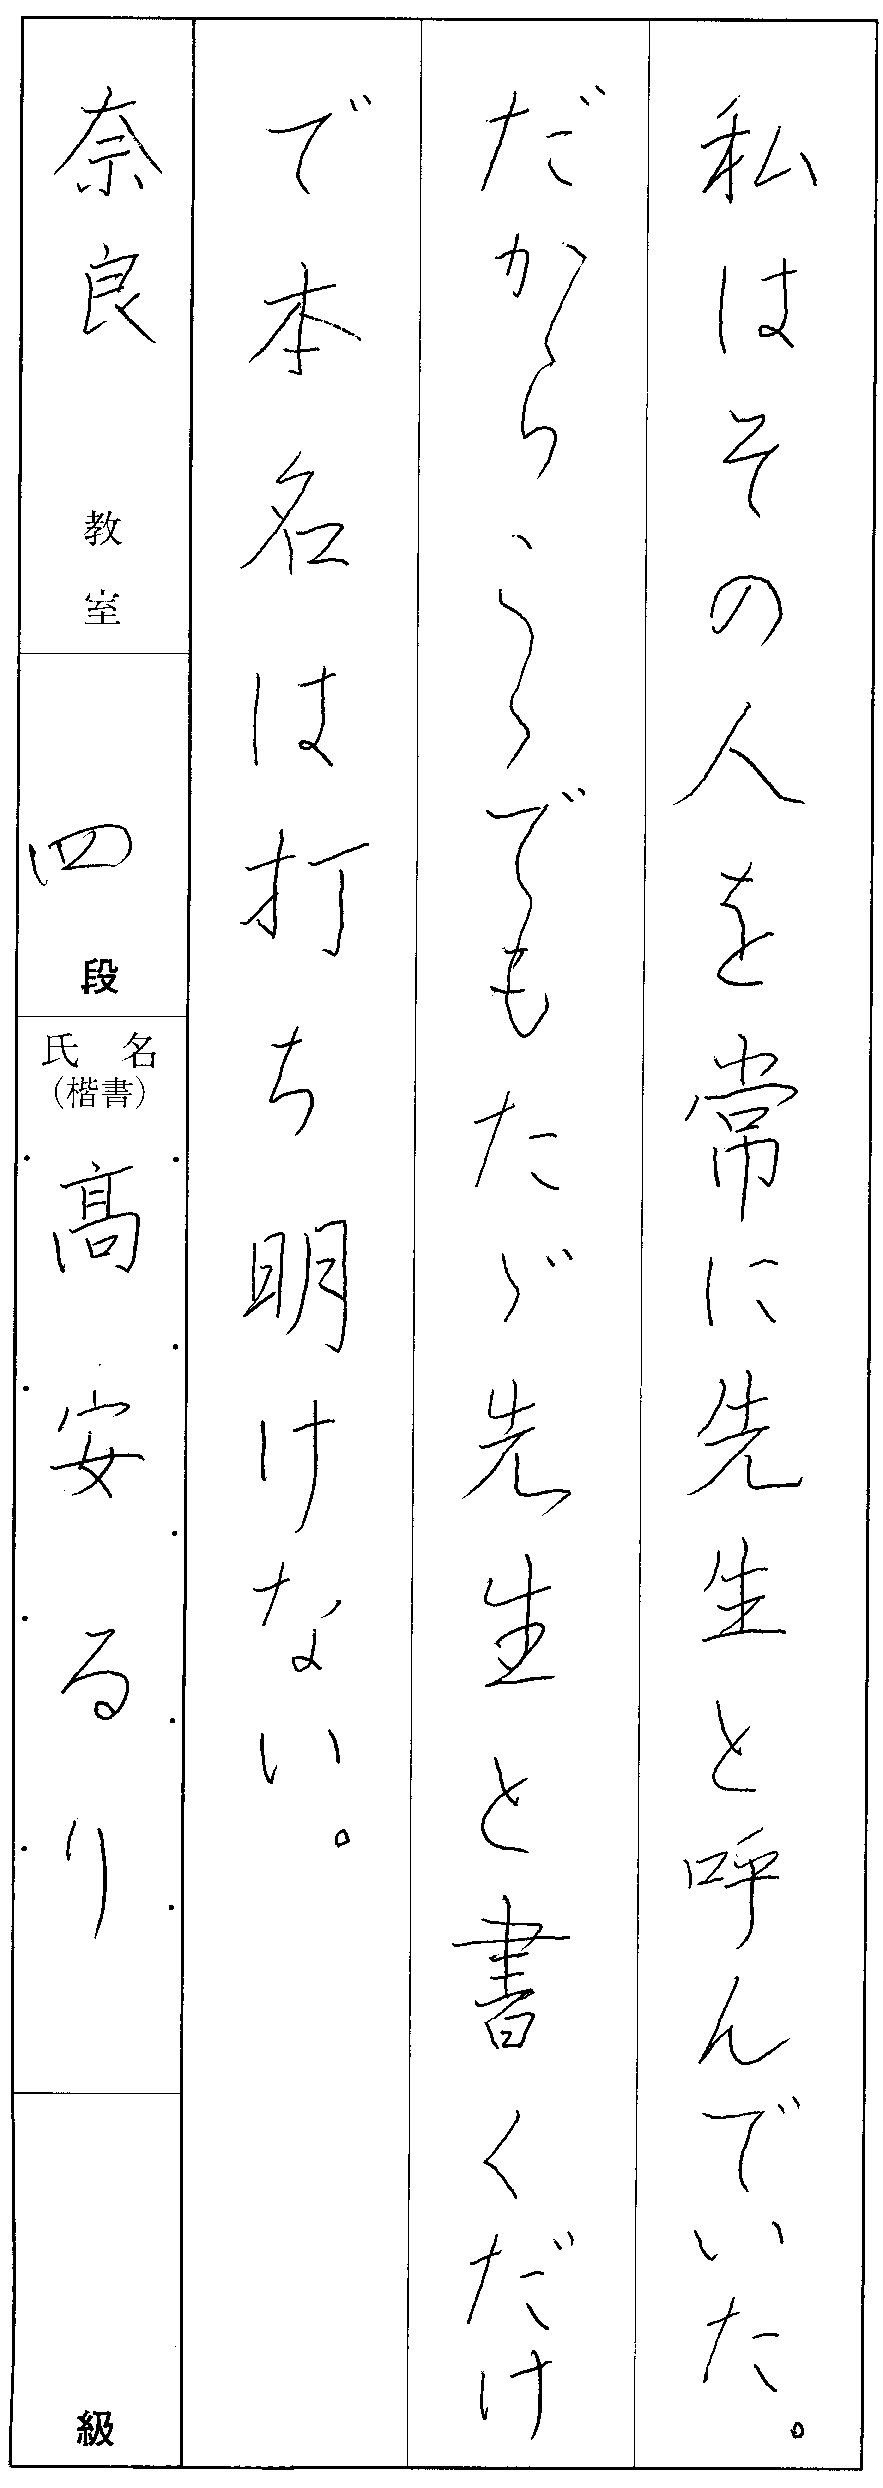 私はその人を常に先生と呼んでいた。
だからこゝでもたゞ先生と書くだけ
で本名は打ち明けない。
奈良 教室
四 段
氏名
(楷書)
髙安るり
級